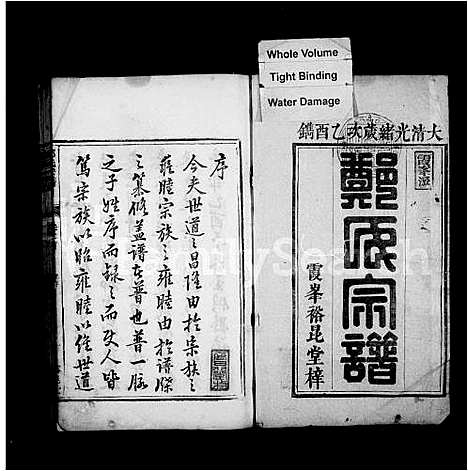 Whole Volume
Tight Binding
Water Damage
大清光緒歲次乙酉鐫
鄭氏宗譜
霞峯裕昆堂梓
序
今夫世道之昌隆由於宗族之
雍睦宗族之雍睦由於譜牒
之纂修蓋譜者普也普一脉
之子姓序而録之而使人皆
篤宗族以昭雍睦以維世道